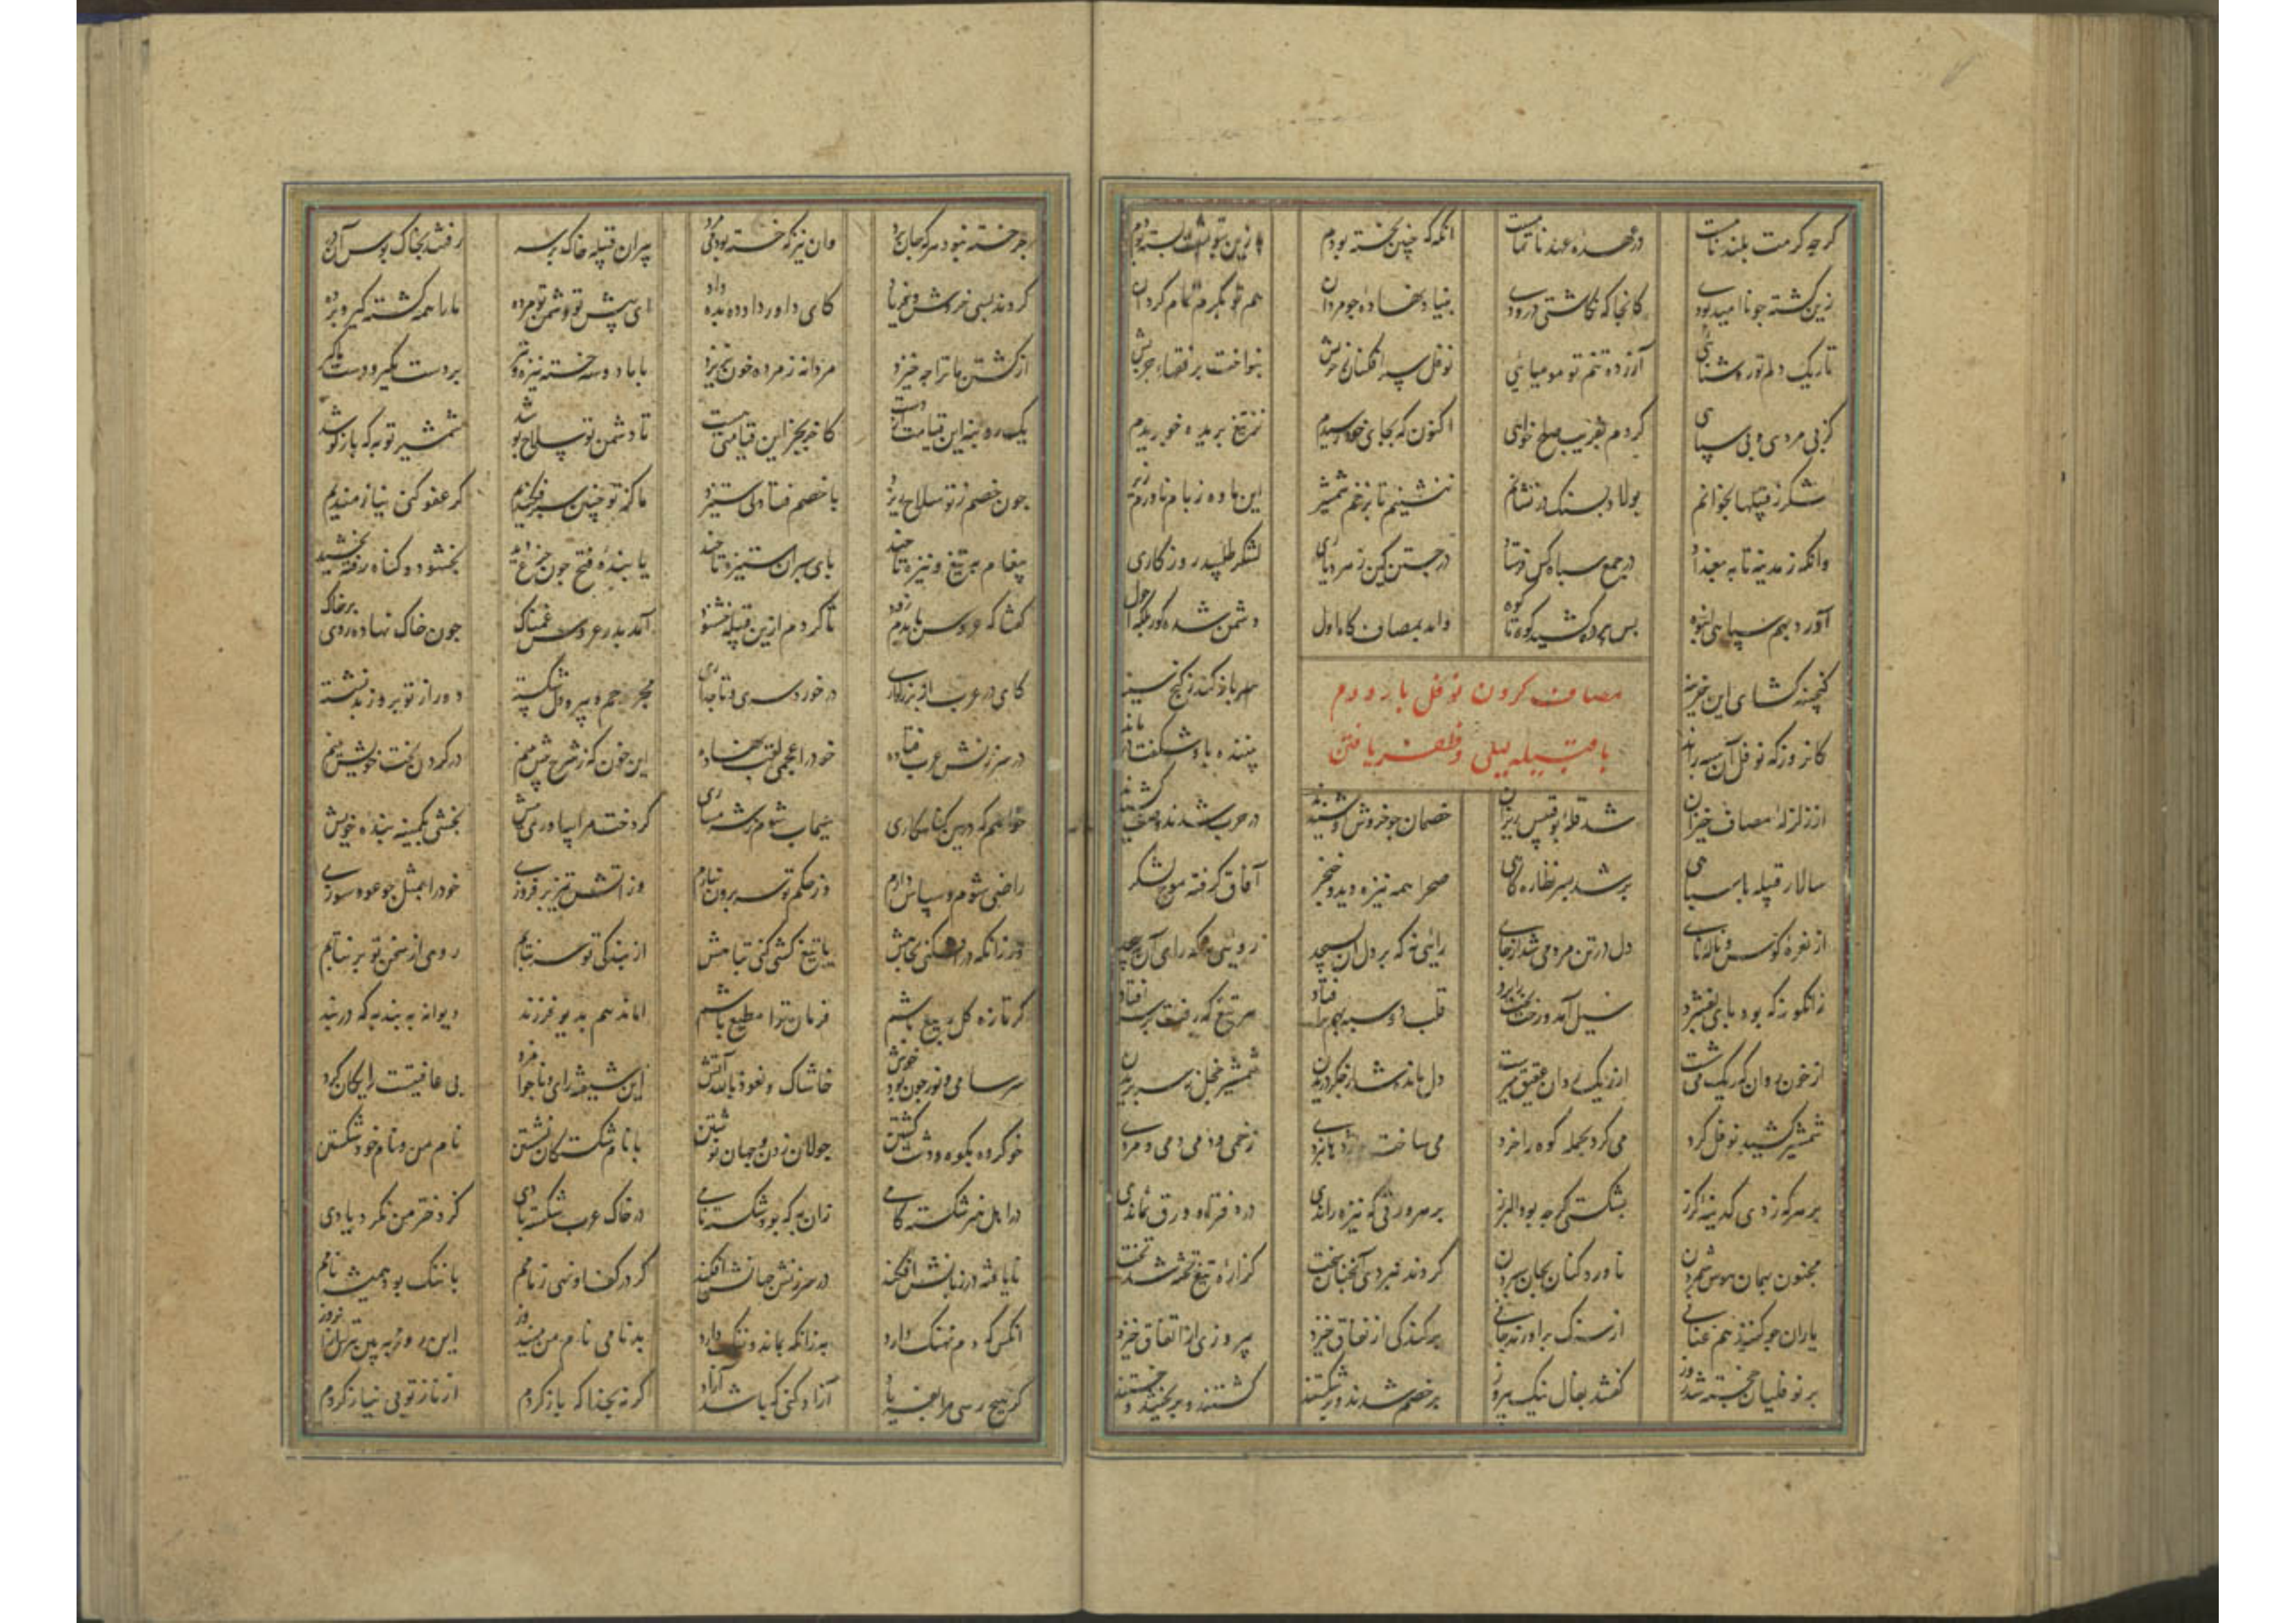 کرچه کرمت بلند نامست در عهده عهد ناتمامست انکه که چنین نخسته بودم
زین کشته چو ناامید بودی کانجا که نکاشتی درودی بنیاد نهاده جومردان هم تو بکرم تمام کردان
تاریک دلم تو روشنائی آزرده تنم تو مومیائی نوفل سپر افکنان ز حربش بنواخت برفقها و چربش
کز بی مردی و بی سپاهی کردم بفریب صلح خواهی اکنون که بجای خود رسیدم نز تیغ برنده خو بریدم
لشکر ز قبیلها بخوانم پولاد بسنک درنشانم ننشینم تا بزخم شمشیر این ماده ز بام ناورم زیر
وانکه ز مدینه تا ببغداد در جمع سپاه کس فرستاد در جستن کین ز هر دیاری لشکر طلبید روزکاری
آورد بهم سپاهی انبوه پس پره کشید کوه تا کوه وامد بمصاف کاه اول دشمن شده کور بلکه احول
کنجینه کشای این خزینه سر باز کند ز کنج سینه
مصاف کردن نوفل بار دوم
با قبیله لیلی و ظفر یافتن
کانروز که نوفل آن سپه راند بیننده بدو شکفت ماند
از زلزله مصاف خیزان شد قله بوقبیس ریزان خصمان جو خروش او شنیدند در حرب شدند و صف کشیدند
سالار قبیله با سپاهی بر شد بسر نظاره کاهی صحرا همه نیزه دید و خنجر آفاق کرفته موج لشکر
از نعره کوس و ناله نای دل در تن مرده می شد از جای رائی نه که بر دل آن بسیجد رویی نه که رای آن بپیچد
زانکونه که بود پای بفشرد سیل آمد و رخت بخت را برد قلب دو سپه بهم برافتاد هر تیغ که رفت بر سر افتاد
از خون روان که ریک می شست از ریک روان عقیق بررست دل مانده شد از جکر دریدن شمشیر خجل ز سر بریدن
شمشیر کشید نوفل کرد می کرد بحمله کوه را خرد می ساخت زخمی و دمی دمی و مردی
بر هر که زدی کدینه کرز بشکستی اکرچه بود البرز بر هر ورقی که نیزه راندی در دفتر او ورق نماندی
مجنون بجان موی شمردن ناورد کنان بجان سپردن کردند نبردی آنچنان سخت کز اره تیغ تخته شد تخت
یاران جو کنند هم عنانی از سنک براورند خانی پر کندکی از نفاق خیزد پیروزی از اتفاق خیزد
بر نوفلیان خجسته شد روز کفتند بفال نیک پیروز بر خصم شدند و برشکستند کشتند و بریختند و خستند
جز خسته نبود هر که جان برد وان نیز که خسته بود می مرد پیران قبیله خاک بر سر رفتند بخاک بوس آن در
کردند بسی خروش و فریاد کای داور داد ده بده داد ای پیش تو دشمن تو مرده ما را همه کشته کیر و برده
از کشتن ما ترا چه خیزد مردانه ز مرده خون نریزد با ما دو سه خسته نیزه و تیر بر دست مکیر و دست ما کیر
یک ره بنه این قیامت از دست کاخر بجز این قیامتی هست تا دشمن تو سلاح پوشد شمشیر تو به که باز کوشد
جون خصم ز تو سلاح ریزد با خصم فتاده کی ستیزد ما کز تو چنین سپر فکندیم کر عفو کنی نیازمندیم
پیغام بر تیغ و نیزه تا جند با بی سپران ستیزه تا جند یابنده فتح جون جزع دید بخشود و کناه رفته بخشید
کفتا که عروس بایدم زود تا کردم ازین قبیله خشنود آمد پدر عروس غمناک جون خاک نهاده روی بر خاک
کای در عرب از بزرکواری در خورد سری و تاجداری مجروحم و پیر و دل شکسته دور از تو بروز بد نشسته
در سرزنش عرب فتاده خود را عجمی لقب نهاده این خون که ز شرح بیش بینم در کردن بخت خویش بینم
خواهم که درین کناهکاری سیماب شوم ز شرمساری کر دخت مرا بیاوری پیش بخشی بکمینه بنده خویش
راضی شوم و سپاس دارم وز حکم تو سر برون نیارم ور آتش تیز برفروزی خود را بمثل جو عود سوزی
ور زانکه درافکنی بچاهش یا تیغ کشی کنی تباهش از بندکی تو سر نتابم روی از سخن تو بر نتابم
فرمان ترا مطیع باشم اما ندهم بدیو فرزند دیوانه به بند به که دربند
سرسامی و نور جون بود خوش خاشاک و نعوذ بالله آتش این شیفته رای ناجوانمرد بی عافیتست و رایکان کرد
خو کرده بکوه و دشت کشتن جولان زدن و جهان نوشتن با نام شکستکان نشستن نام من و نام خود شکستن
در اهل هنر شکسته کامی زان به که بود شکسته نامی در خاک عرب نماند بادی کز دختر من نکرد یادی
نایافته در زبانش افکند در سرزنش جهانش افکند کر در کف او نهی زمامم با ننک بود همیشه نامم
آنکس که دم نهنک دارد به زانکه بماند و ننک دارد
کر هیچ رسی مرا بفریاد آزاد کنی که باشی آزاد کرنه بخدا که باز کردم از ناز تو بی نیاز کردم